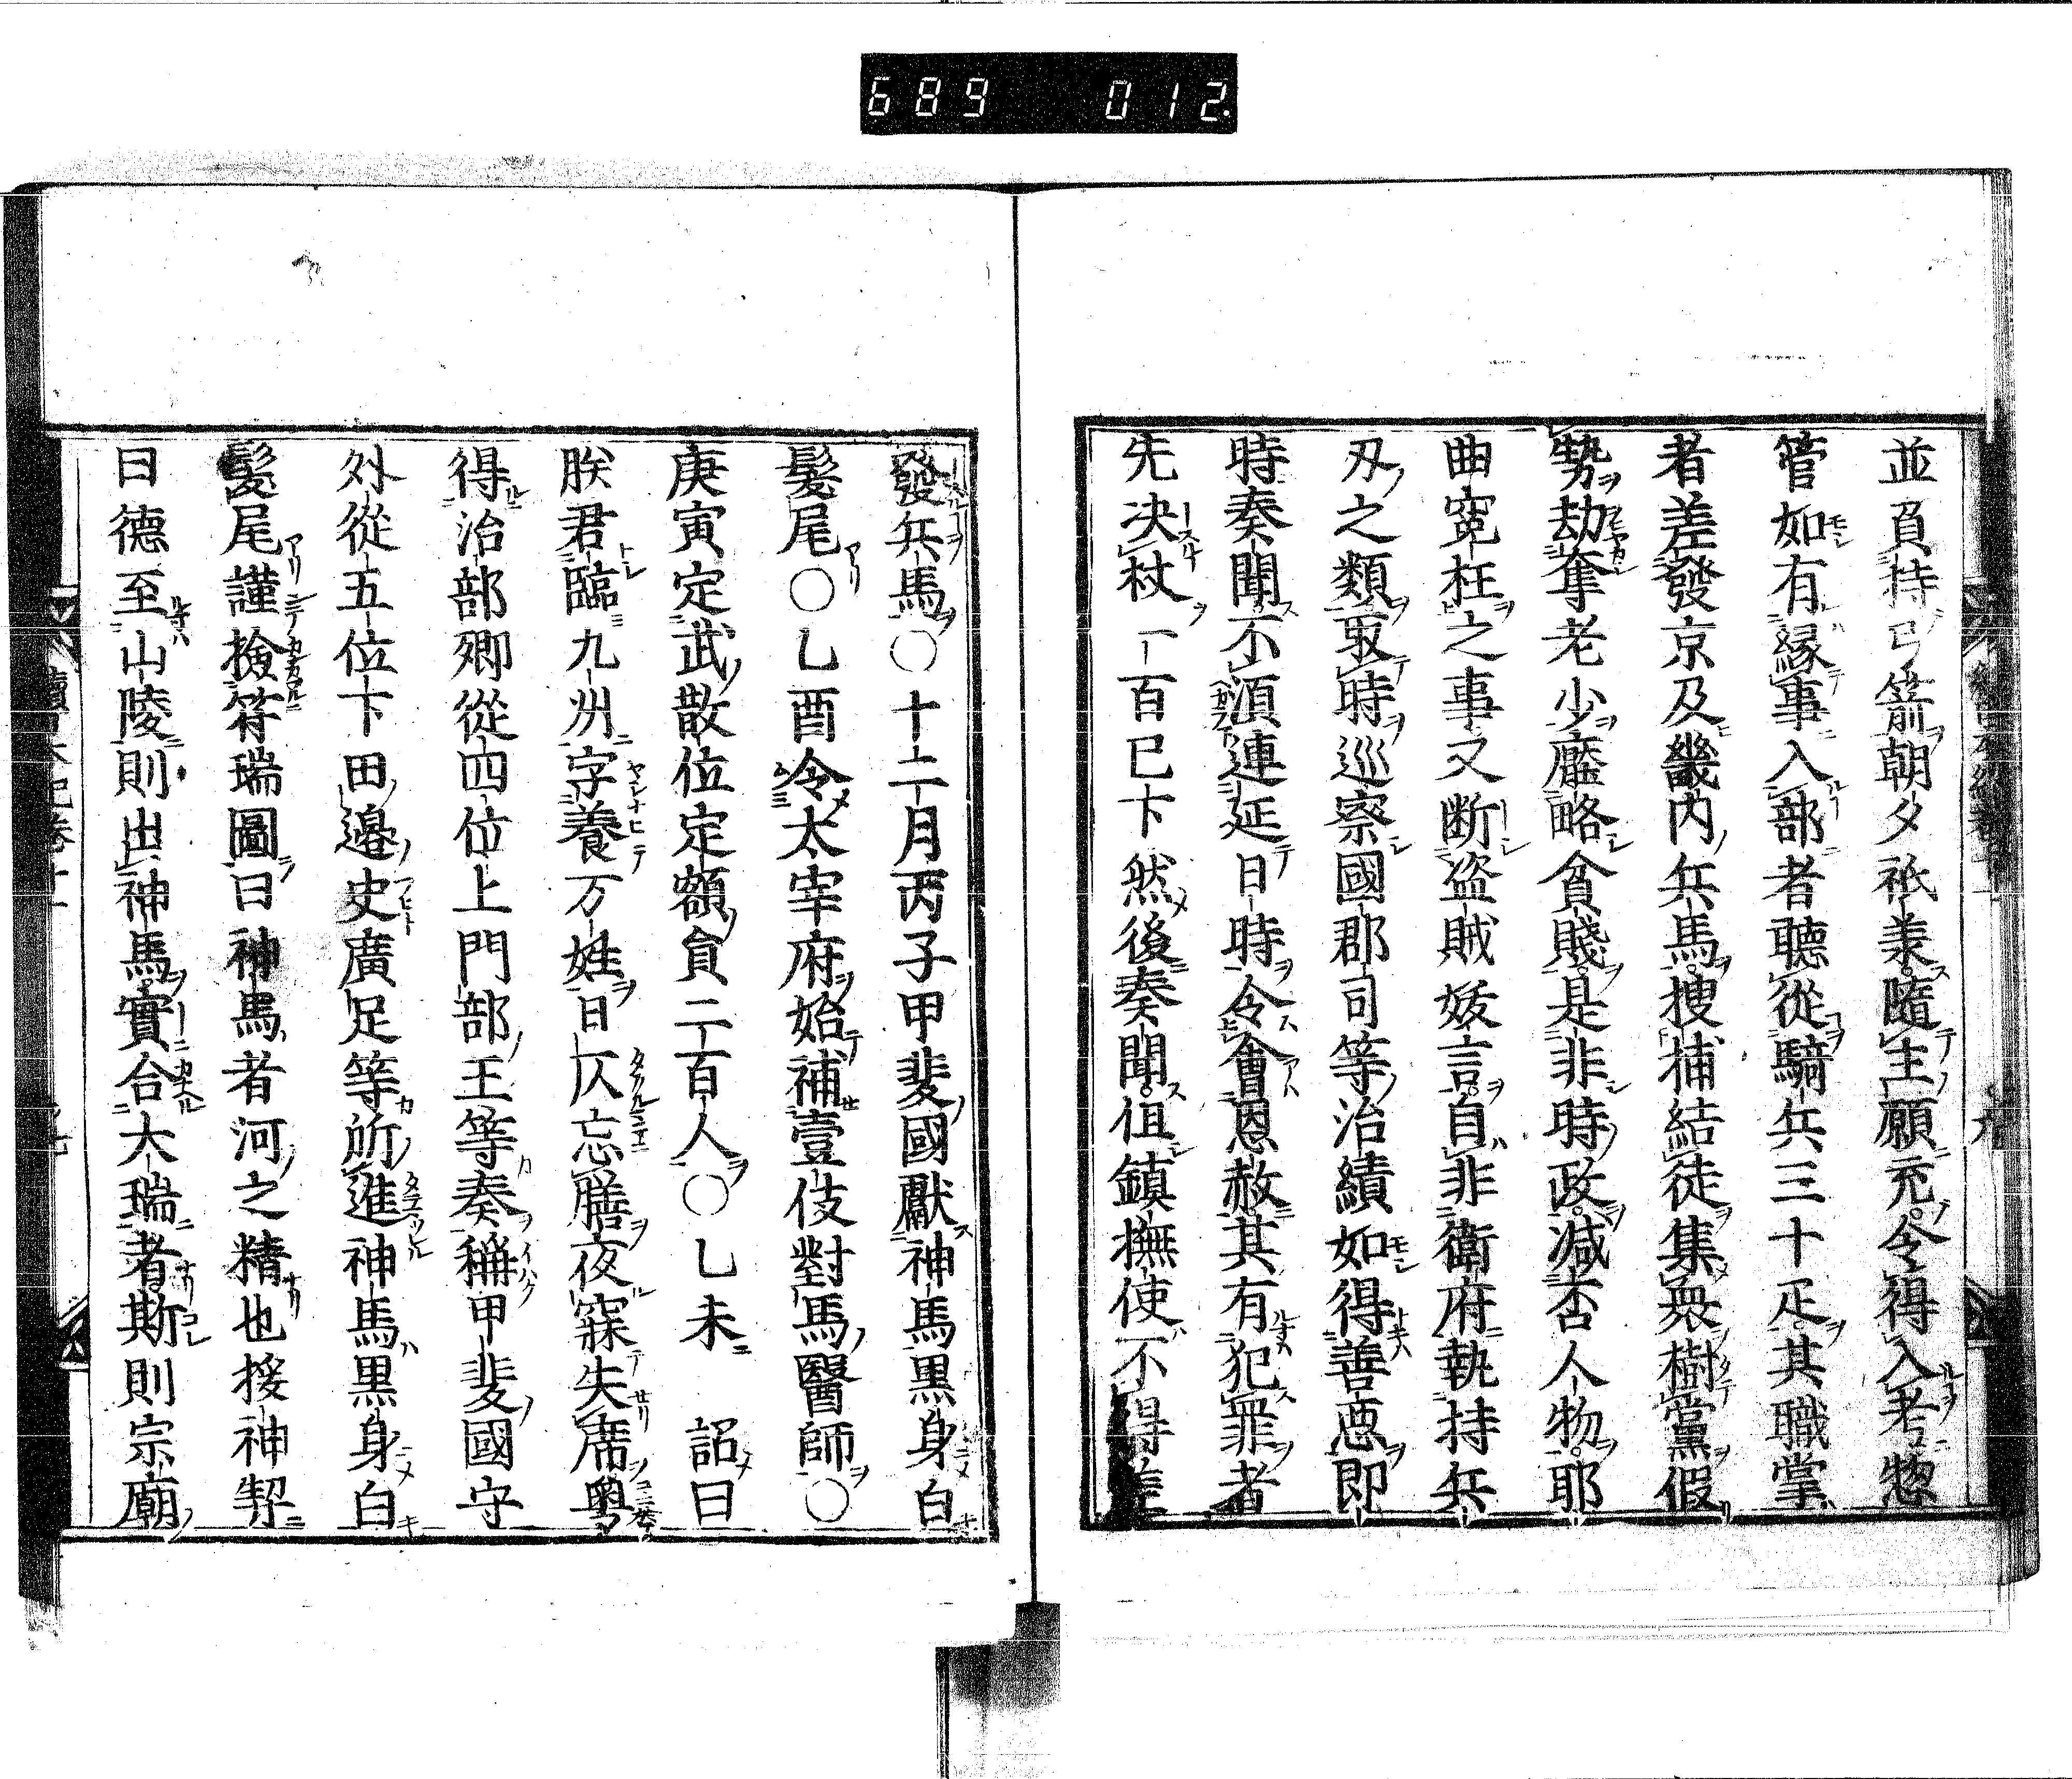 689 012
並負持弓箭朝夕祇羕隨主願充令得入考惣
管如有縁事入部者聽從騎兵三十疋其職掌
者差發京及畿内兵馬搜捕結徒集衆樹黨假
勢劫奪老少壓略貧賤是非時政減否人物耶
曲寃枉之事又断盜賊妖言自非衛府執持兵
刄之類取時巡察國郡司等治績如得善惡即
時奏聞不湏連延日時令會恩赦其有犯罪者
先决杖一百已下然後奏聞但鎮撫使不得差
發兵馬〇十二月丙子甲斐國獻神馬黒身白
髮尾〇乙酉令太宰府始補壹伎對馬醫師〇
庚寅定武散位定額貟二百人〇乙未 詔曰
朕君臨九州字養万姓日仄忘膳夜寐失席粤
得治部卿從四位上門部王等奏稱甲斐國守
外從五位下田邊史廣足等所進神馬黒身白
髮尾謹撿符瑞圖曰神馬者河之精也援神契
曰德至山陵則出神馬實合大瑞者斯則宗廟